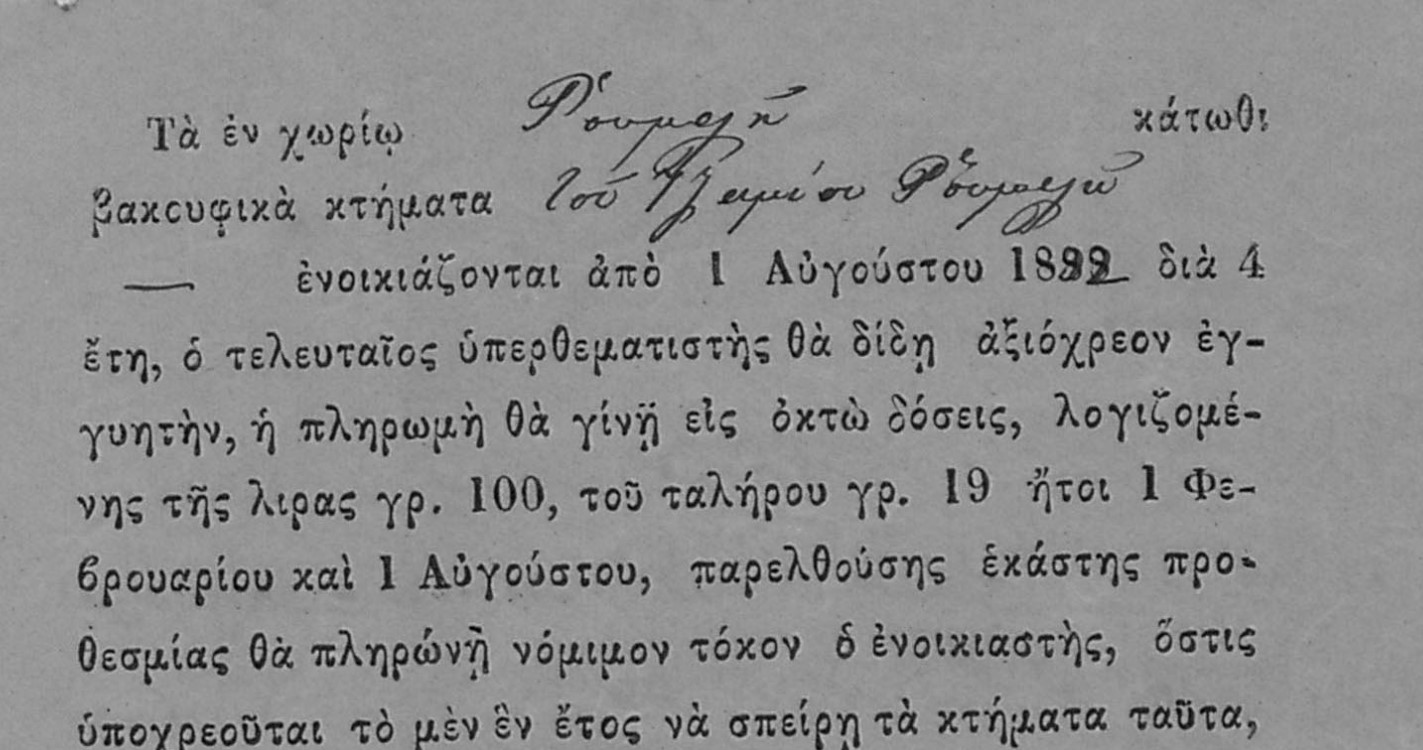 Τὰ ἐν χωρίῳ Ῥουμελῆ κάτωθι
βακουφικὰ κτήματα τοῦ Τζαμίου Ῥουμελῆ
— ἐνοικιάζονται ἀπὸ 1 Αὐγούστου 1892 διὰ 4
ἔτη, ὁ τελευταῖος ὑπερθεματιστὴς θὰ δίδῃ ἀξιόχρεον ἐγ-
γυητὴν, ἡ πληρωμὴ θὰ γίνῃ εἰς ὀκτὼ δόσεις, λογιζομέ-
νης τῆς λιρας γρ. 100, τοῦ ταλήρου γρ. 19 ἤτοι 1 Φε-
βρουαρίου καὶ 1 Αὐγούστου, παρελθούσης ἑκάστης προ-
θεσμίας θὰ πληρώνῃ νόμιμον τόκον ὁ ἐνοικιαστὴς, ὅστις
ὑποχρεοῦται τὸ μὲν ἓν ἔτος νὰ σπείρῃ τὰ κτήματα ταῦτα,